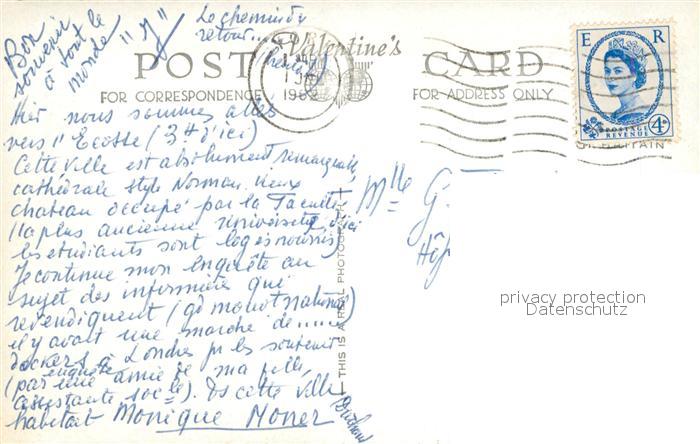 Bon
souvenir
à tout le
monde
"y"
Le chemin du
retour...
(hélas)
POST
Valentine's
CARD
FOR CORRESPONDENCE
FOR ADDRESS ONLY
E R
POSTAGE
REVENUE
4D
THIS IS A REAL PHOTOGRAPH
Hier nous sommes allés
vers l'Ecosse (3h d'ici)
Cette ville est absolument remarquable
cathédrale style Norman, vieux
chateau occupé par la Faculté
(la plus ancienne université d'ici
les étudiants sont logés nourris)
Je continue mon enquête au
sujet des infirmières qui
revendiquent (gd mouvt national)
il y avait une marche de......
dockers à Londres pr les soutenir
(par enquête
une amie de ma fille
assistante soc le). Ds cette ville
habitait Monique
Mlle G.
Hôp
privacy protection
Datenschutz